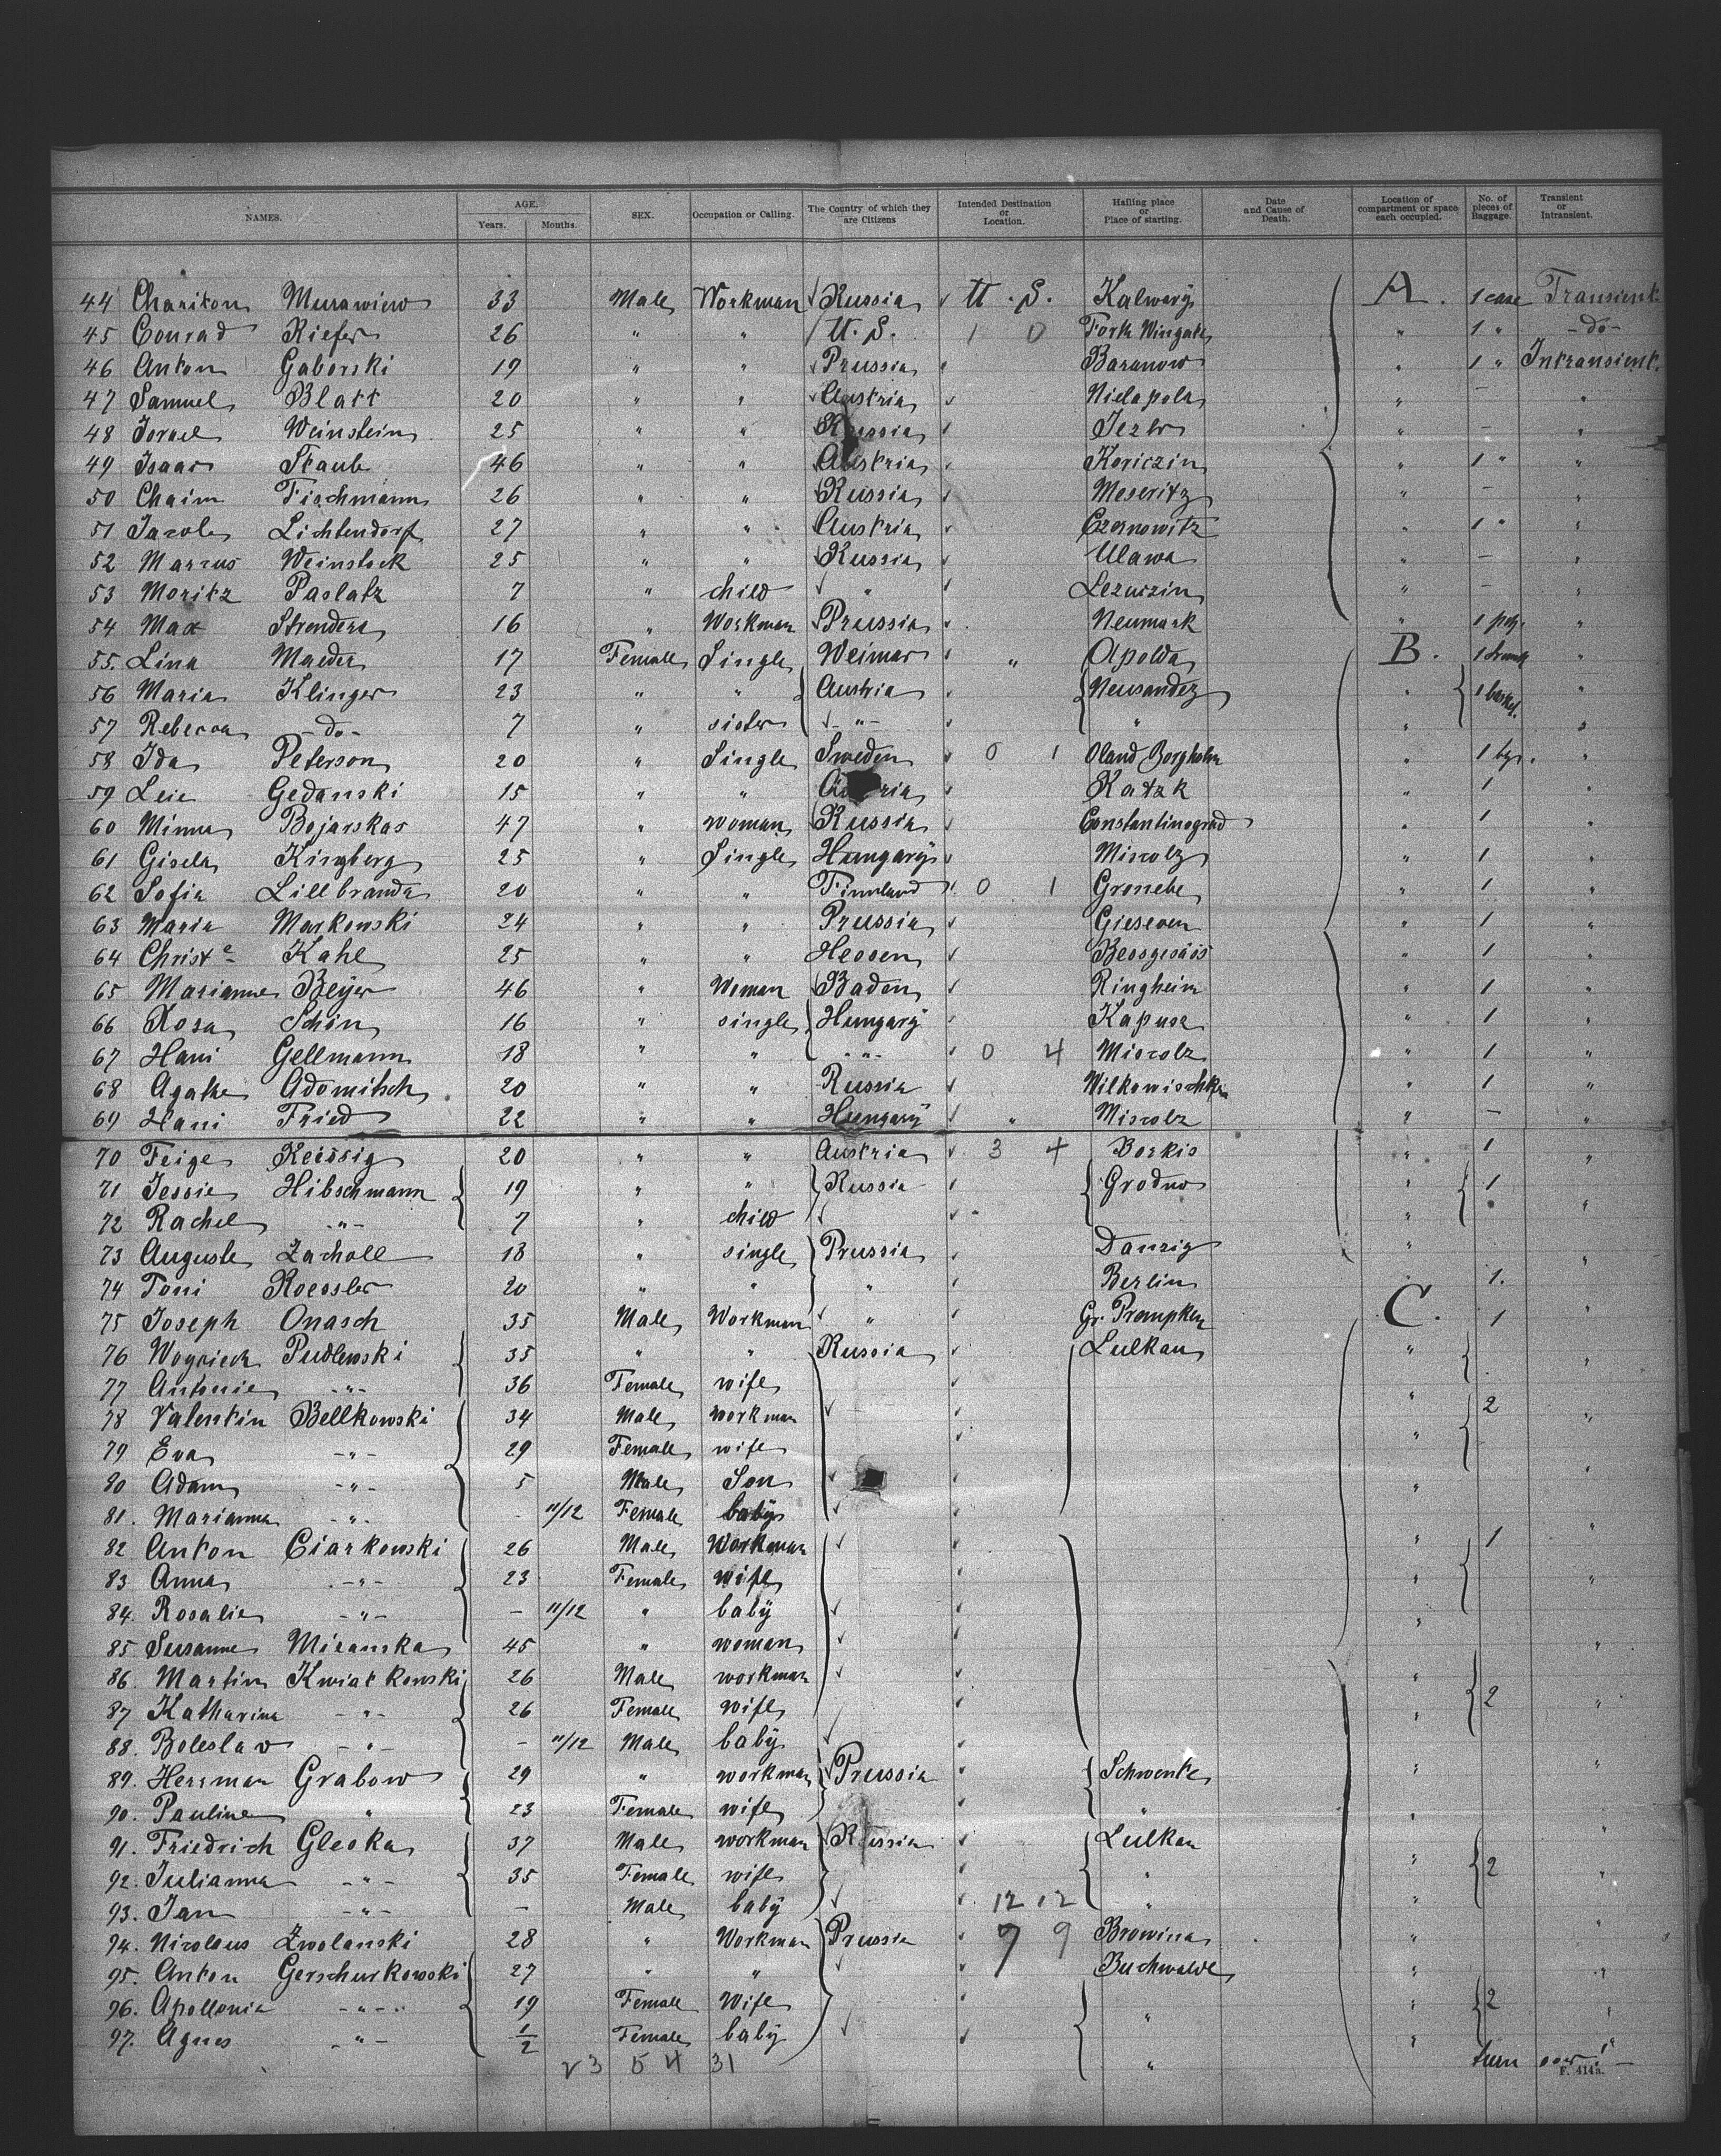 NAMES. AGE. Years. Months. SEX. Occupation or Calling. The Country of which they are Citizens Intended Destination or Location. Hailing place or Place of starting. Date and Cause of Death. Location of compartment or space each occupied. No. of pieces of Baggage. Transient or Intransient.
44 Chariton Murawiew 33 Male Workman Russia U. S. Kalwary A. 1 case Transient
45 Conrad Kiefer 26 " " U. S. 1 0 Fork Wingate " 1 " -do-
46 Anton Gaborski 19 " " Prussia Baranow " 1 " Intransient.
47 Samuel Blatt 20 " " Austria Nielapola " - "
48 Israel Weinstein 25 " " Russia Jezlr " - "
49 Isaac Staub 46 " " Austria Koriczin " 1 " "
50 Chaim Fischmann 26 " " Russia Meseritz " - "
51 Jacob Lichtendorf 27 " " Austria Czernowitz " 1 " "
52 Marcus Weinstock 25 " " Russia Ulawa " - "
53 Moritz Paslatz 7 " child " Lezuczin " - "
54 Max Strendera 16 " Workman Prussia Neumark " 1 pkg. "
55. Lina Maeder 17 Female Single Weimar " Apolda B. 1 trunk "
56 Maria Klinger 23 " " Austria Neusandez " 1 basket. "
57 Rebecca -do- 7 " sister -"- " " "
58 Ida Peterson 20 " Single Sweden 0 1 Oland Borgholm " 1 bg. "
59 Leie Gedanski 15 " " Austria Katzk " 1 "
60 Minna Bojarskas 47 " woman Russia Constantinograd " 1 "
61 Gisela Kingberg 25 " Single Hungary Miscolz " 1 "
62 Sofia Lillbranda 20 " " Finnland 0 1 Gronehe " 1 "
63 Maria Markowski 24 " " Prussia Gieseven " 1 "
64 Christe Kahl 25 " " Hessen Beosgesäss " 1 "
65 Marianne Beyer 46 " Woman Baden Ringheim " 1 "
66 Rosa Schön 16 " single Hungary Kapusz " 1 "
67 Hani Gellmann 18 " " -"- 0 4 Miscolz " 1 "
68 Agathe Adomitsch 20 " " Russia Wilkowischken " 1 "
69 Hani Fried 22 " " Hungary " Miscolz " - "
70 Feige Reissig 20 " " Austria 3 4 Borkis " 1 "
71 Jessie Hibschmann 19 " " Russia Grodno " 1
72 Rachel -"- 7 " child " "
73 Auguste Zacholl 18 " single Prussia Danzig " "
74 Toni Roessler 20 " " " Berlin 1.
75 Joseph Onasch 35 Male Workman " Gr. Prompken C. 1 "
76 Woyciech Pudlewski 35 " " Russia Lulkau " "
77 Antonie -"- 36 Female wife "
78 Valentin Bellkowski 34 Male workman 2 "
79 Eva -"- 29 Female wife "
80 Adam -"- 5 Male Son " "
81. Marianna -"- - 11/12 Female baby "
82 Anton Ciarkowski 26 Male Workman " 1
83 Anna -"- 23 Female wife " "
84. Rosalie -"- - 11/12 " baby "
85 Susanne Micanska 45 " woman "
86. Martin Kwiatkowski 26 Male workman "
87 Katharina -"- 26 Female wife " 2 "
88. Boleslav -"- - 11/12 Male baby
89. Herrman Grabow 29 " workman Prussia Schwenke " "
90. Pauline " 23 Female wife " "
91. Friedrich Gleoka 37 Male workman Russia Lulkau "
92. Julianna -"- 35 Female wife " " 2 "
93. Jan -"- - Male baby 12 12 " "
94. Nicolaus Zwolanski 28 " Workman Prussia 7 9 Browina " "
95. Anton Gerschurkowski 27 " " Buchwalde " "
96. Apollonia -"- 19 Female Wife " " 2 "
97. Agnes -"- 1/2 Female baby " "
23 54 31 " turn over!
F. 414a.